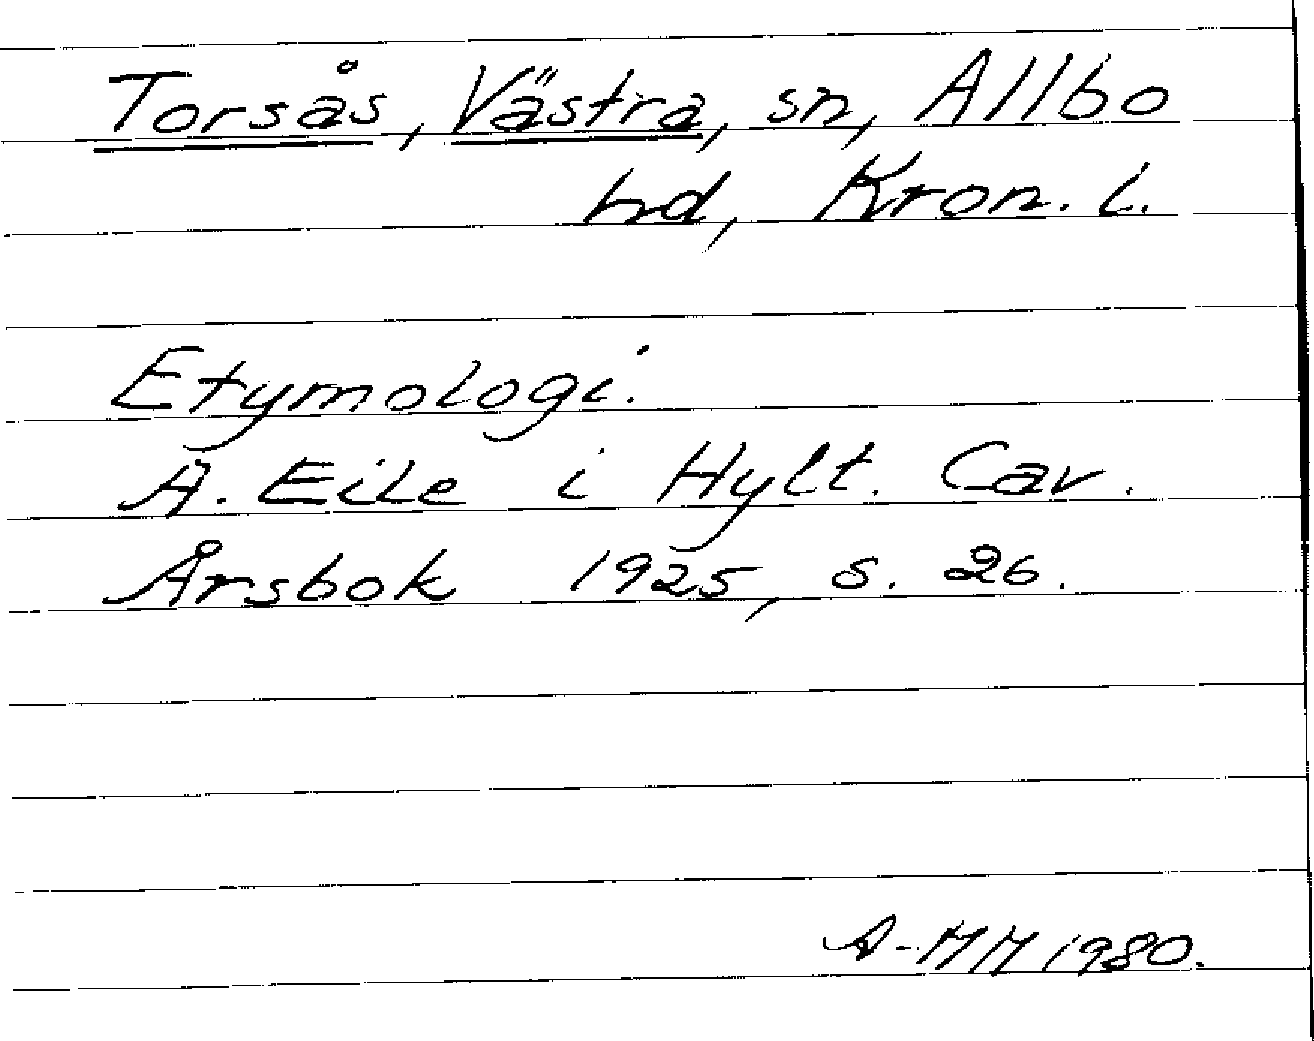 Torsås, Västra, sn, Allbo
hd, Kron. l.
Etymologi.
A. Eile i Hylt. Cav.
Årsbok 1925, s. 26.
A-MM 1980.